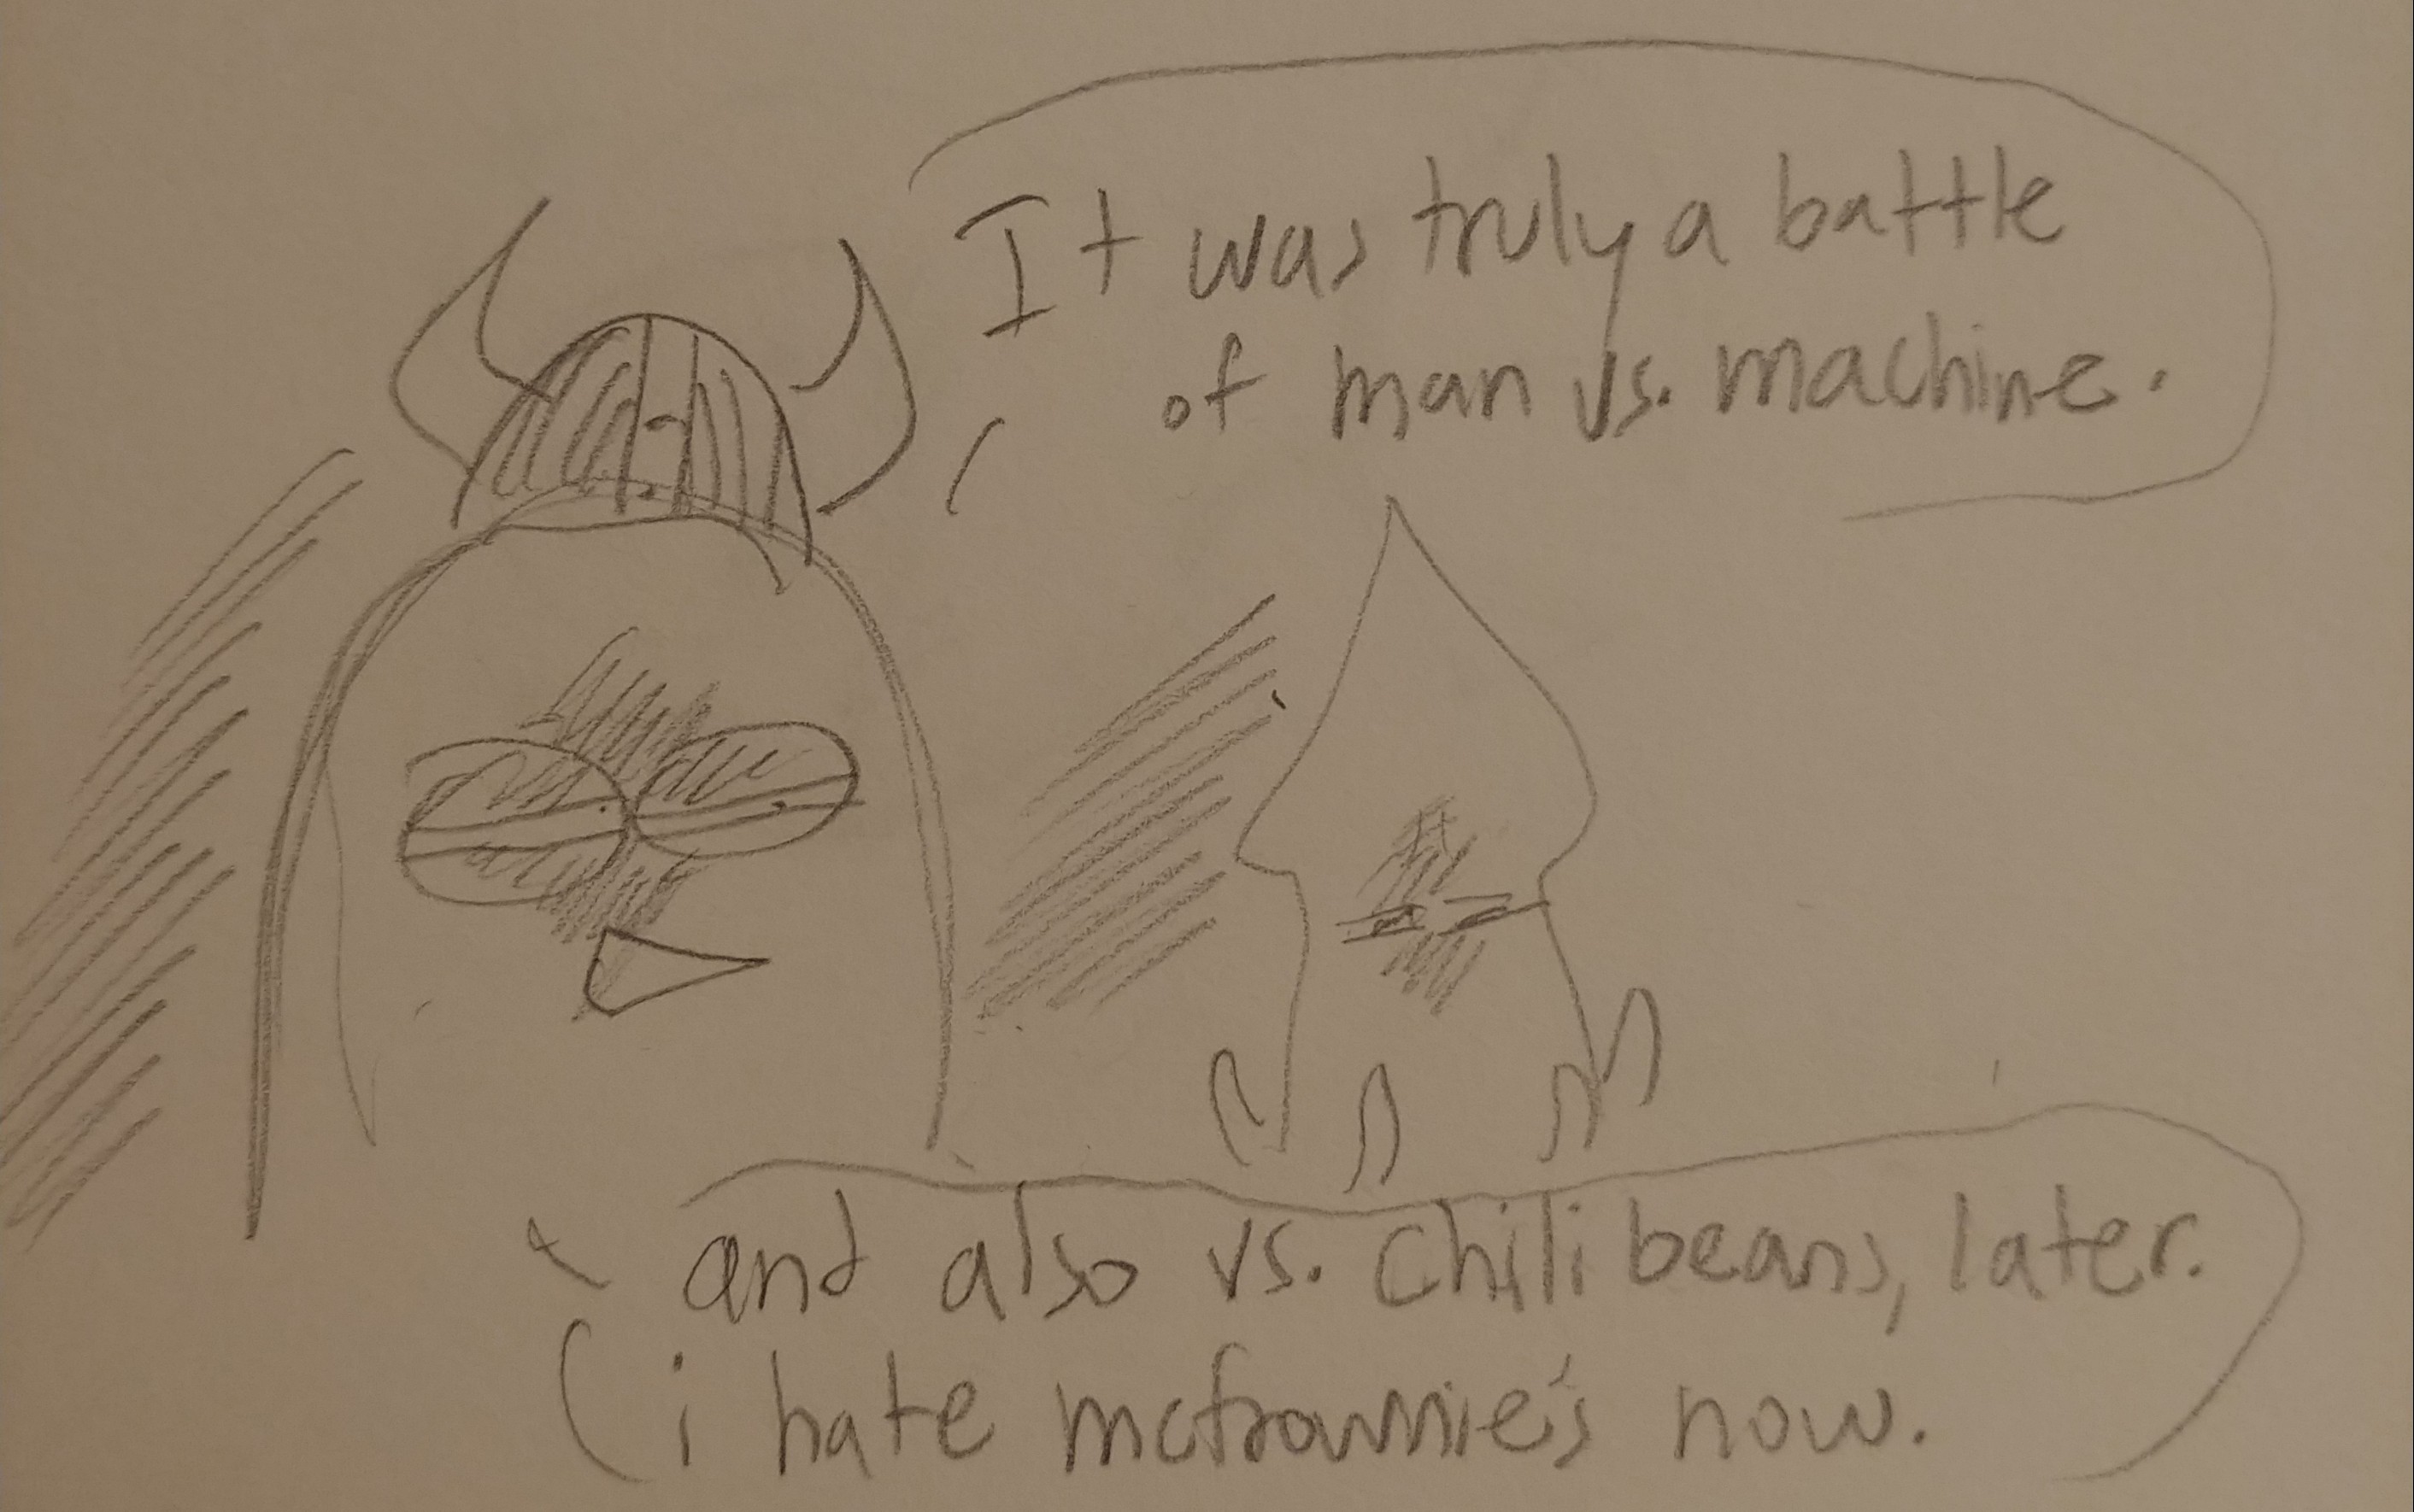 It was truly a battle
of man vs. machine.
and also vs. chili beans, later.
i hate mcfrownie's now.